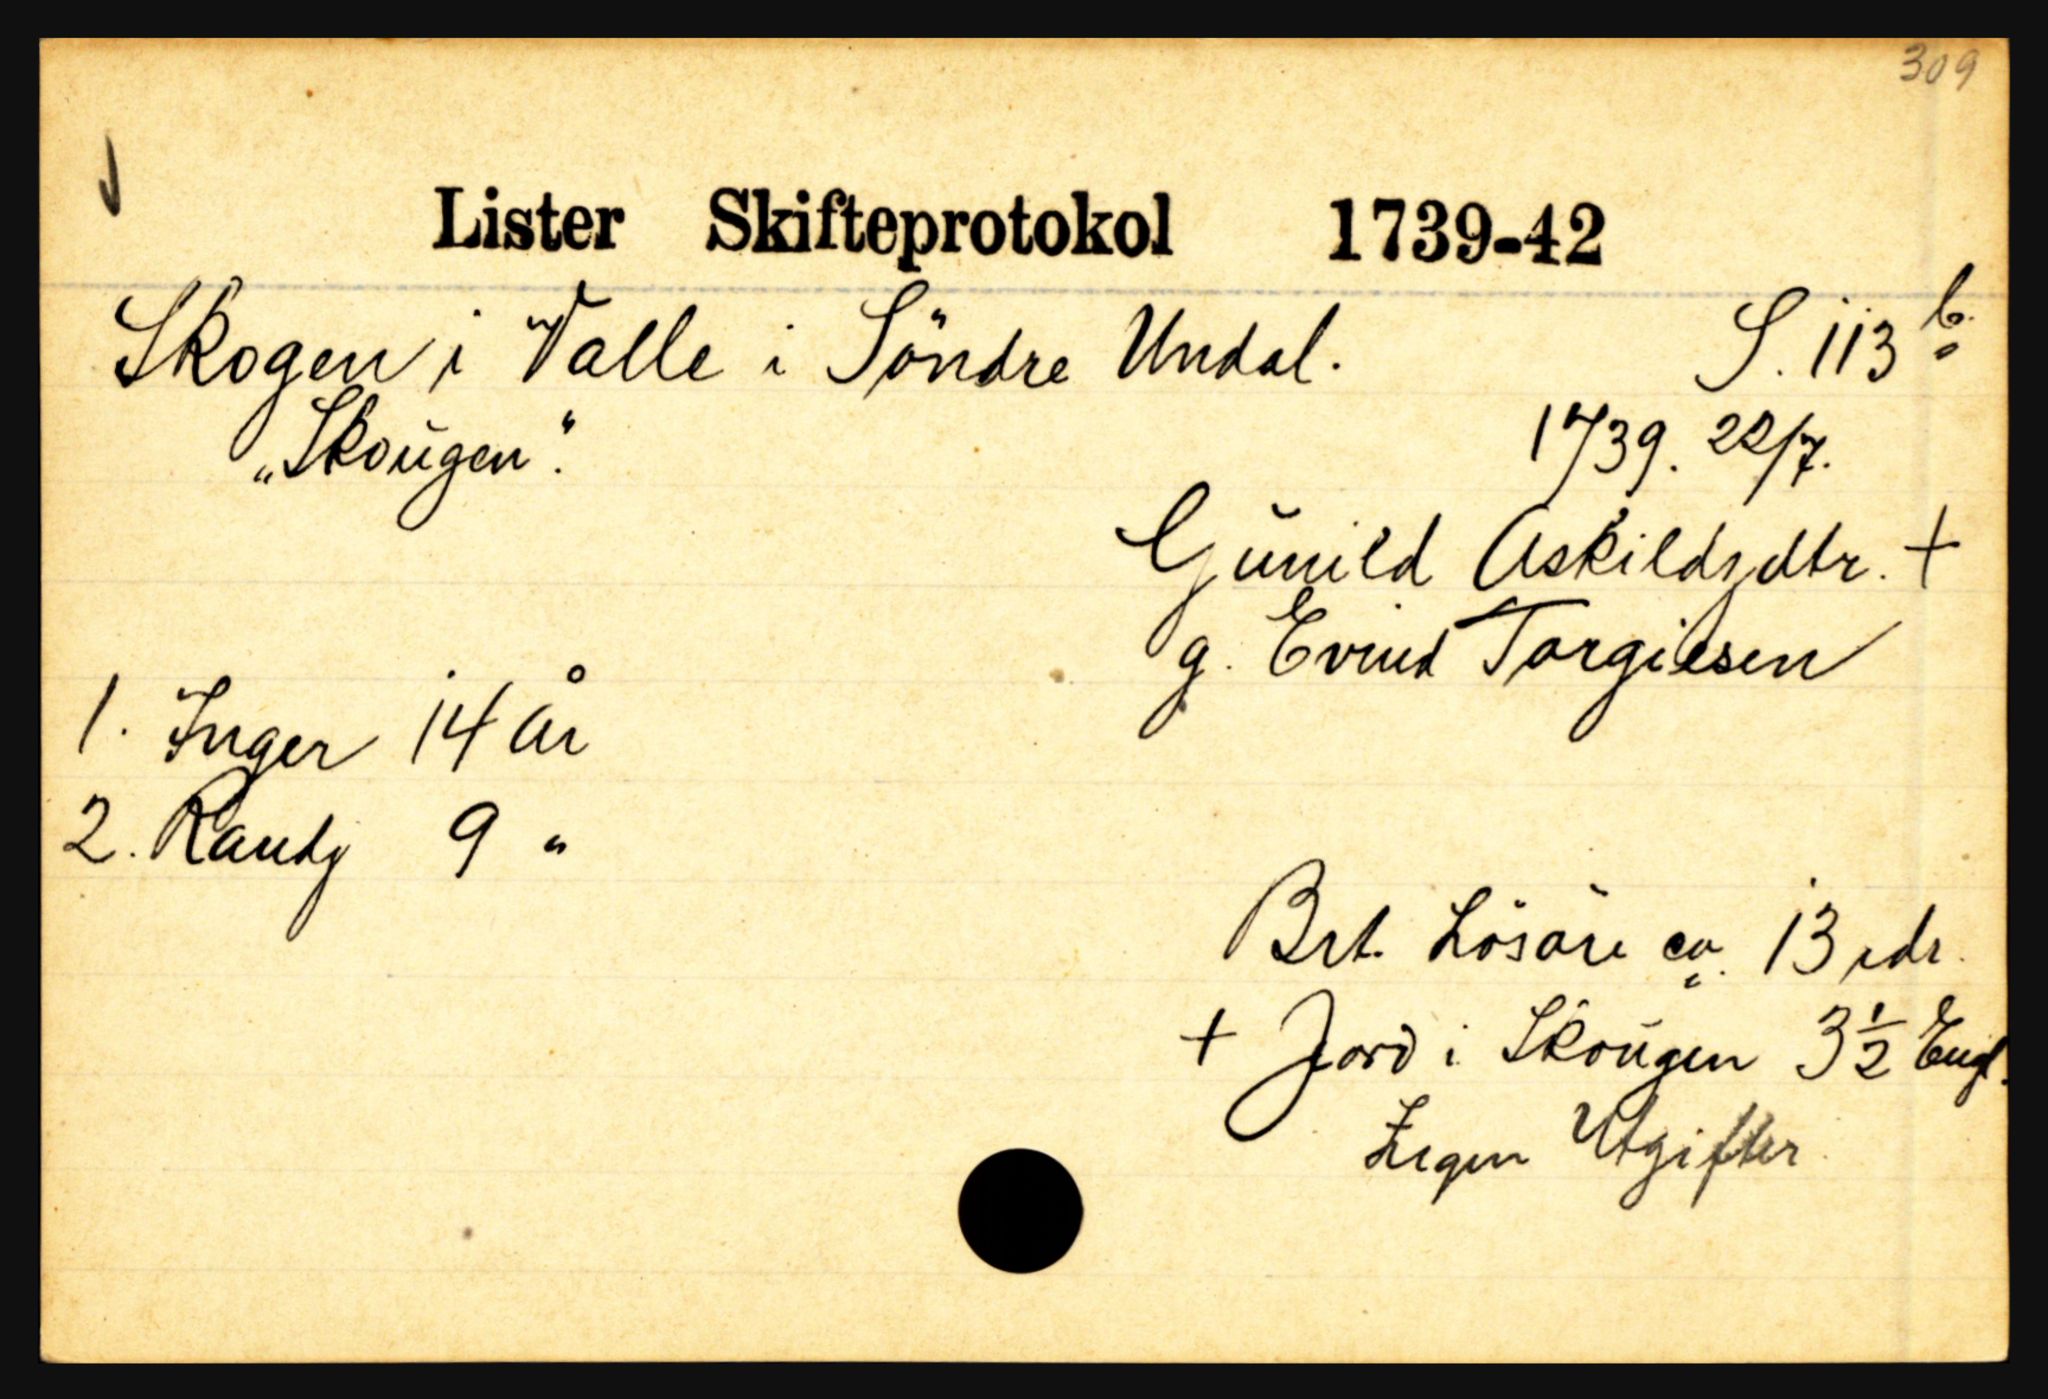 309
Lister Skifteprotokol 1739-42
Skogen i Valle i Söndre Undal. S. 113 b.
„Skoŭgen“. 1739. 22/7.
Gŭnild Askildsdtr. +
g. Evind Torgiesen
1. Inger 14 år
2. Randj 9 "
Brt. Lösöre ca. 13 rdr.
+ Jord i Skoŭgen 3 1/2 Engl.
Ingen Utgifter.